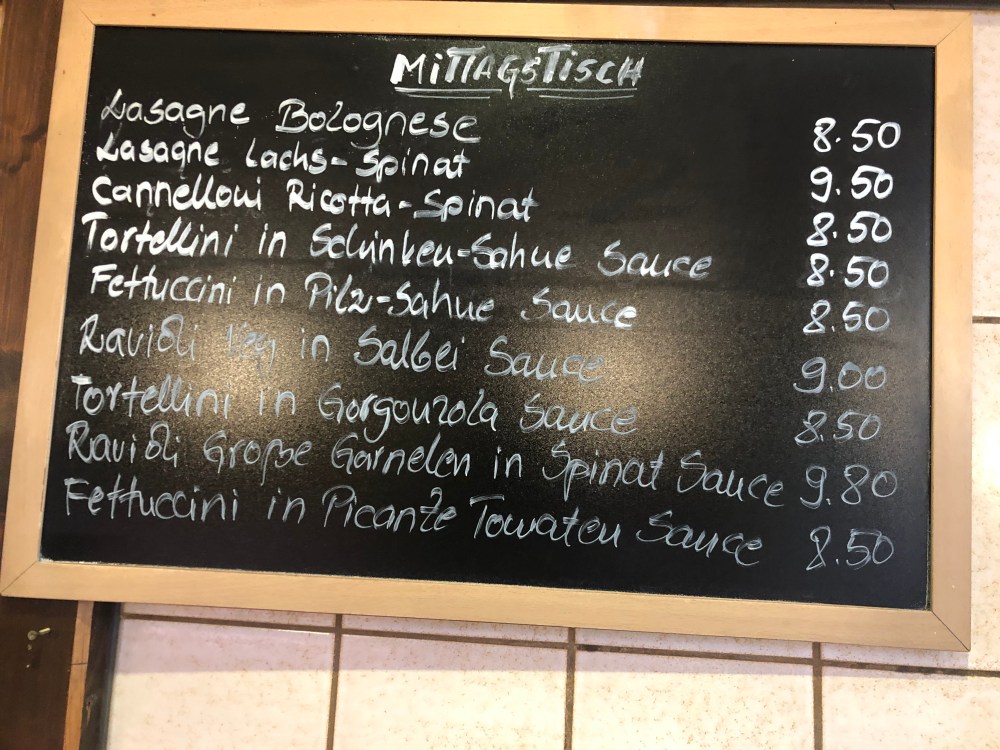 MITTAGSTISCH
Lasagne Bolognese 8.50
Lasagne Lachs-Spinat 9.50
Cannelloni Ricotta-Spinat 8.50
Tortellini in Schinken-Sahne Sauce 8.50
Fettuccini in Pilz-Sahne Sauce 8.50
Ravioli Veg in Salbei Sauce 9.00
Tortellini in Gorgonzola Sauce 8.50
Ravioli Große Garnelen in Spinat Sauce 9.80
Fettuccini in Picante Tomaten Sauce 8.50